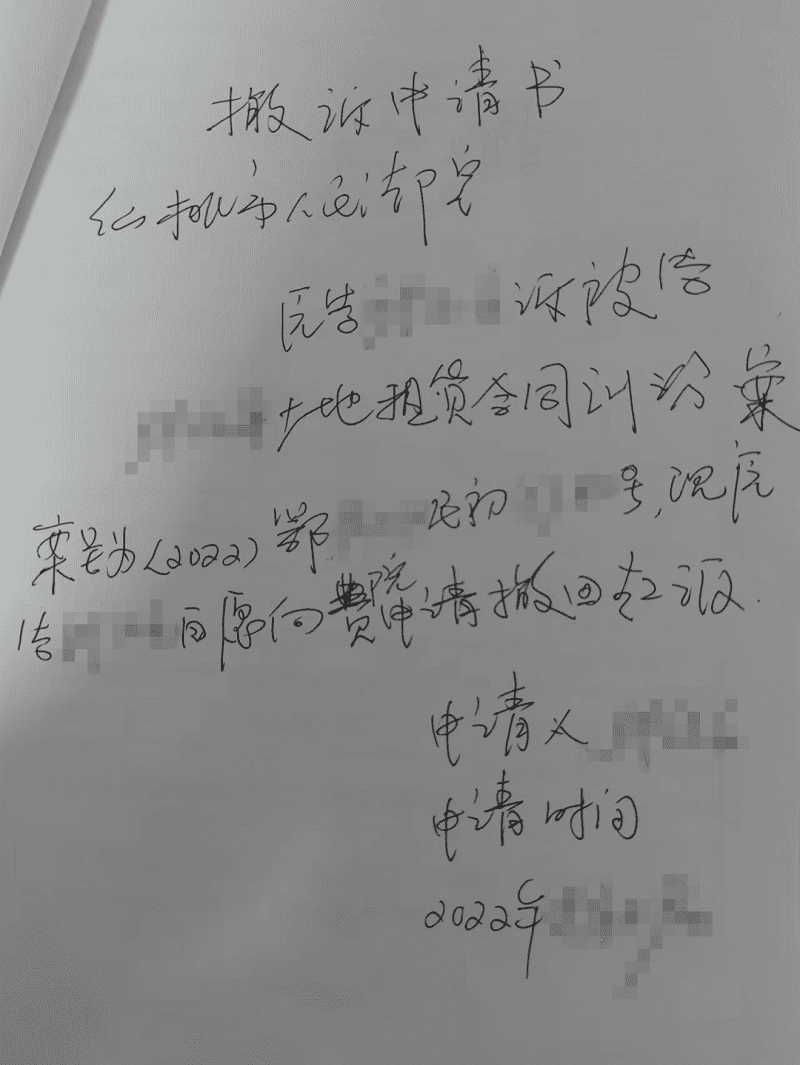 撤诉申请书
仙桃市人民法院
原告 诉被告
土地租赁合同纠纷案
案号为(2022)鄂 民初 号,现原
告 自愿向贵院申请撤回起诉.
申请人
申请时间
2022年